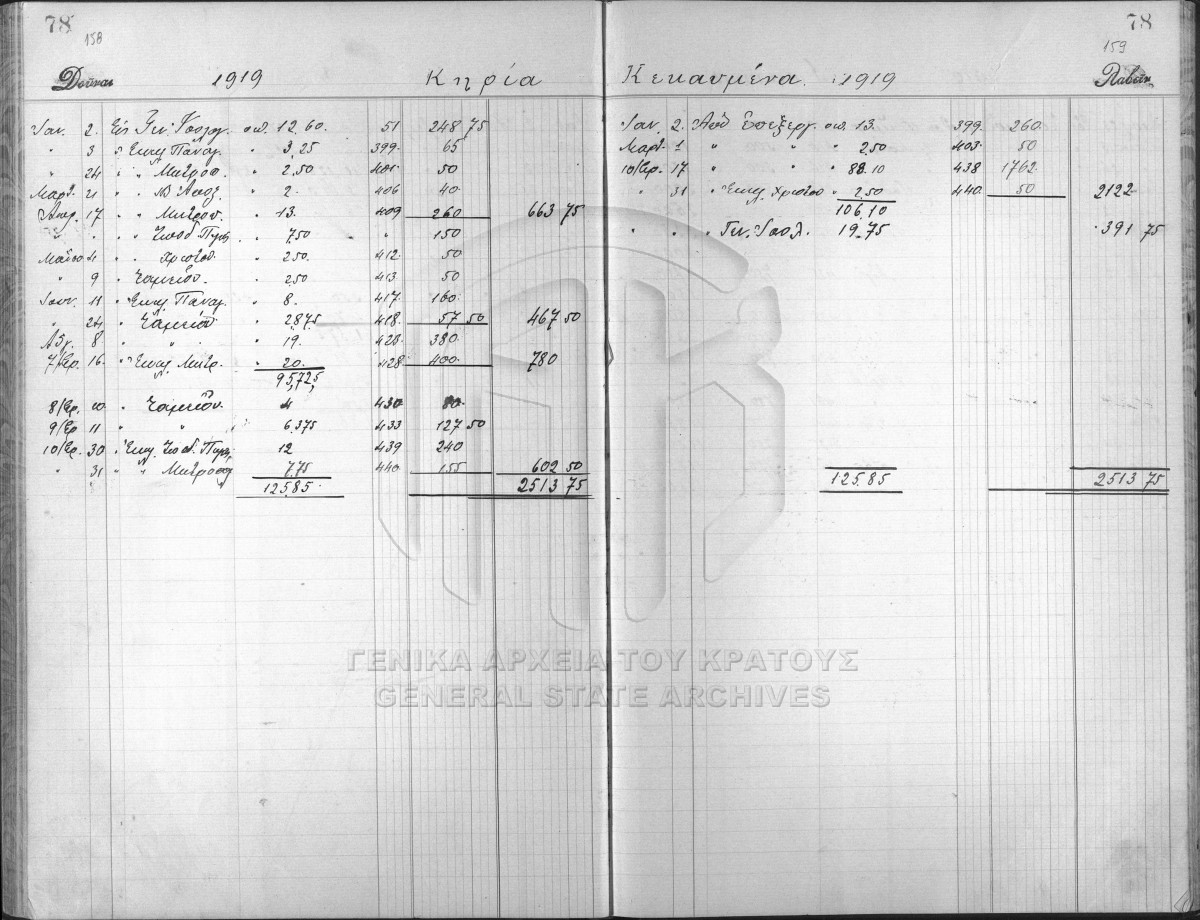 78
158
Δοῦναι 1919 Κηρία
Ιαν. 2. Εἰς Γεν. Ισολογ. οκ. 12.60. 51 248 75
" 3 " Εκκλ Παναγ. " 3,25 399. 65
" 24 " " Μητροπ. " 2,50 401. 50
Μαρτ. 21 " " " 2. 406 40.
Απρ. 17 " " Μητροπ. " 13. 409 260 663 75
" " " " " 7,50 " 150
Μαΐου 4 " " Χριστου " 2,50. 412. 50
" 9 " Ταμεῖον. " 2,50 413. 50
Ιουν. 11 " Εκκλ Παναγ. " 8. 417. 160.
" 24 " Ταμεῖον " 28,75 418. 57 50 467 50
Αὔγ. 8 " " " 19. 428. 380
7/βρ. 16. " Εκκλ. Μητρ. " 20. 428 400 780
95,725,
8/βρ. 10. " Ταμεῖον. 4 430 80.
9/βρ 11 " " 6.375 433 127 50
10/βρ. 30 " Εκκλ. 12 439 240
" 31 " " Μητροπολ 7,75 440 155 602 50
125,85. 2513 75
78
159
Κεκαυμένα. 1919 Λαβεῖν
Ιαν. 2. Ἀπὸ ἐπεξεργ. οκ. 13. 399. 260.
Μαρτ. 1 " " " 2,50 403. 50
10/βρ. 17 " " " 88.10 438 1762
" 31 " Εκκλ. Χριστου " 2,50 440. 50 2122
106,10
" " " Γεν. Ισολ. 19.75 391 75
125,85 2513 75
ΓΕΝΙΚΑ ΑΡΧΕΙΑ ΤΟΥ ΚΡΑΤΟΥΣ
GENERAL STATE ARCHIVES